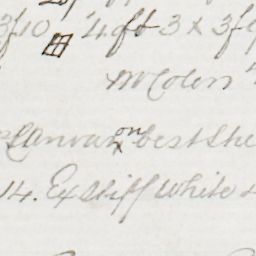 3f10 4 ft 3 x 3f
McColin
Canvas on best She
14. Ex Stiff White